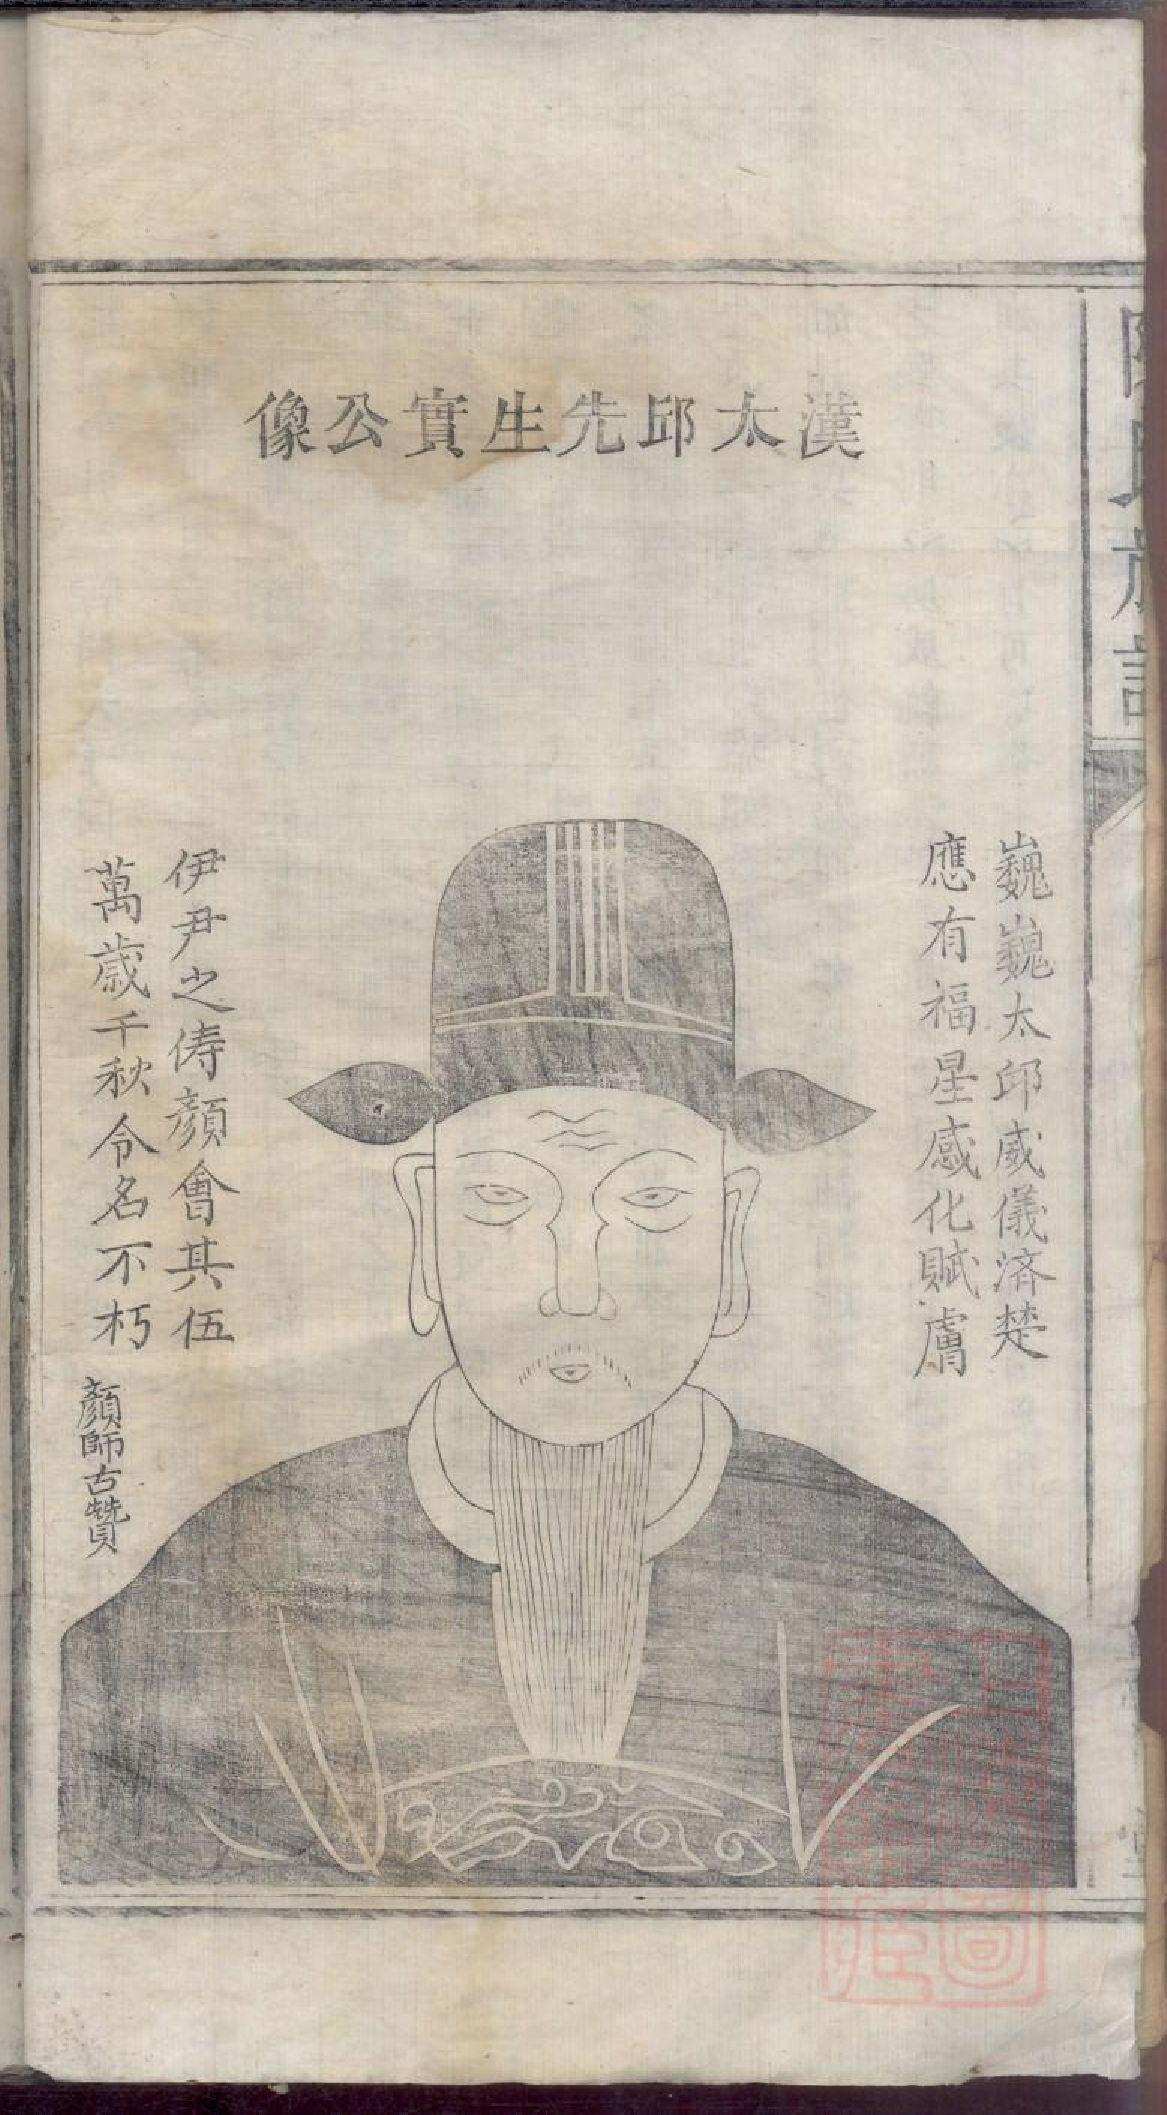 漢太邱先生實公像
巍巍太邱威儀濟楚
應有福星感化賦膚
伊尹之儔顏會其伍
萬歲千秋令名不朽
顏師古贊